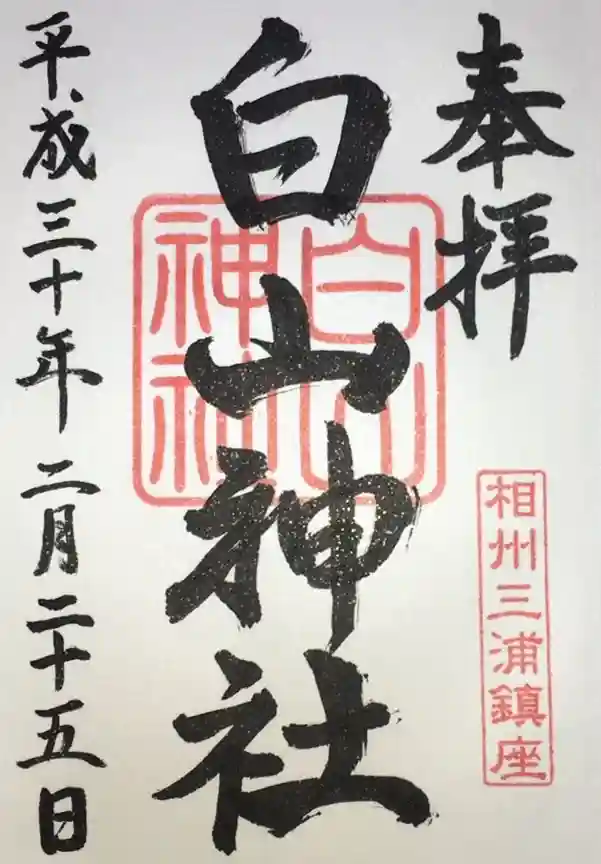 奉拝
相州三浦鎮座
白山神社
白山
神社
平成三十年二月二十五日